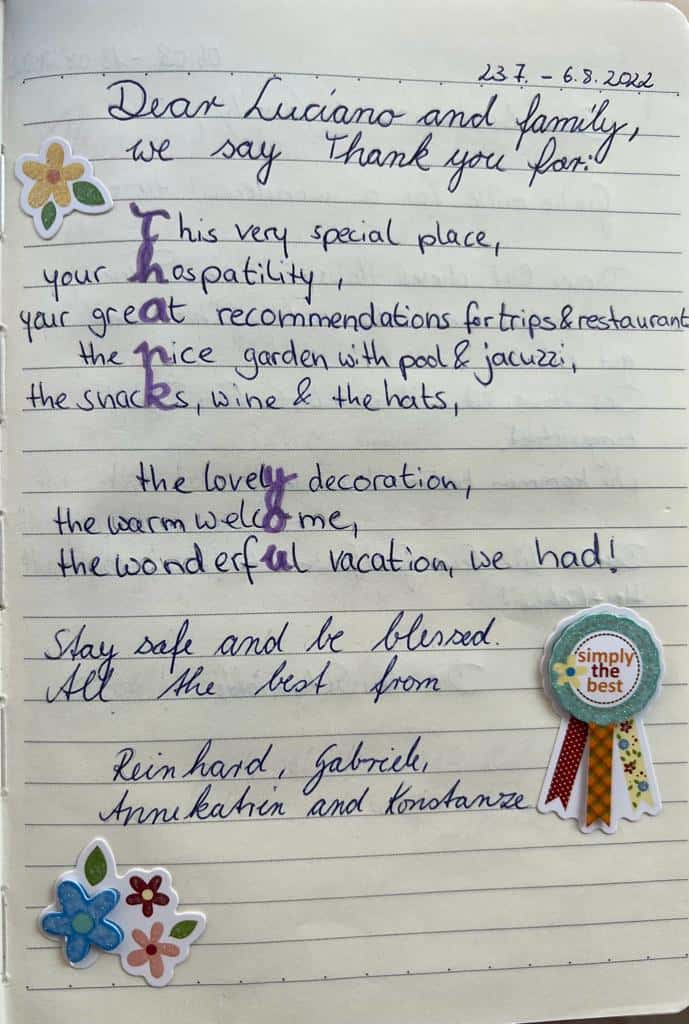 23.7. - 6.8.2022
Dear Luciano and family,
we say Thank you for:
This very special place,
your hospatility,
your great recommendations for trips & restaurant
the nice garden with pool & jacuzzi,
the snacks, wine & the hats,
the lovely decoration,
the warm welcome,
the wonderful vacation, we had!
Stay safe and be blessed.
All the best from
Reinhard, Gabriele,
Annekatrin and Konstanze
simply
the
best